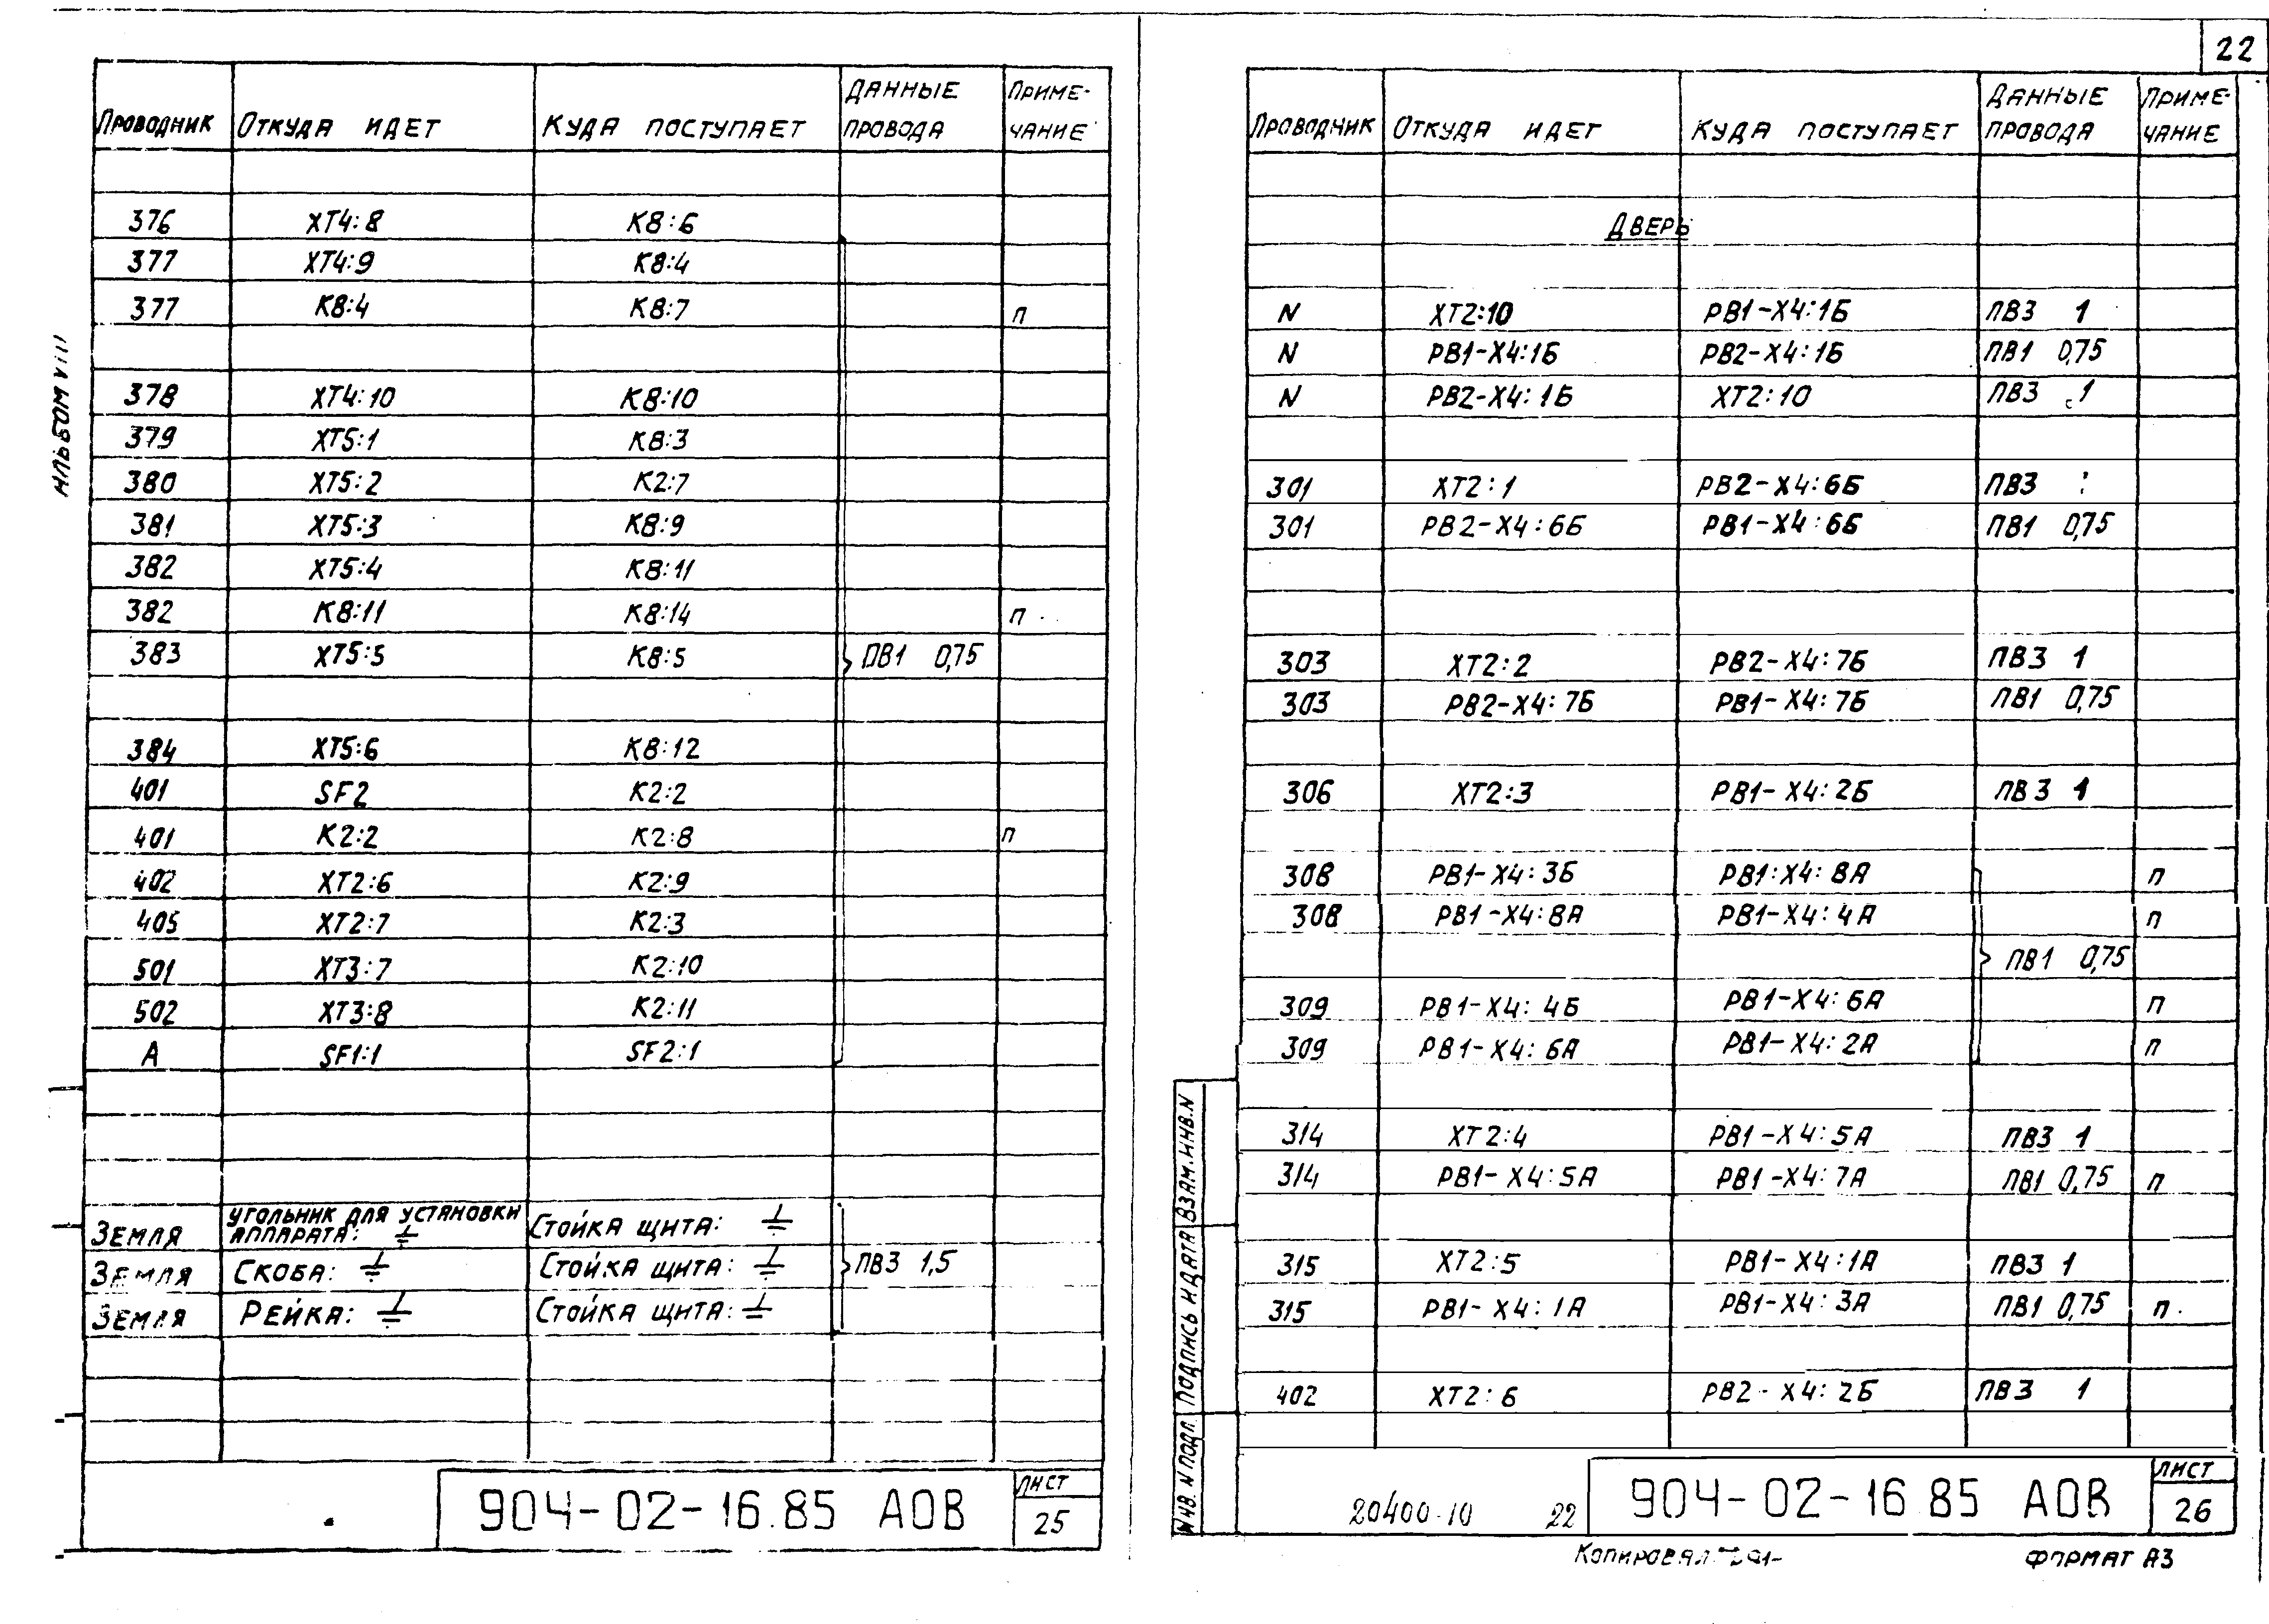 22
Альбом VIII
Проводник Откуда идет Куда поступает Данные провода Примечание
376 XT4:8 K8:6
377 XT4:9 K8:4
377 K8:4 K8:7 п
378 XT4:10 K8:10
379 XT5:1 K8:3
380 XT5:2 K2:7
381 XT5:3 K8:9
382 XT5:4 K8:11
382 K8:11 K8:14 п
383 XT5:5 K8:5 ПВ1 0,75
384 XT5:6 K8:12
401 SF2 K2:2
401 K2:2 K2:8 п
402 XT2:6 K2:9
405 XT2:7 K2:3
501 XT3:7 K2:10
502 XT3:8 K2:11
A SF1:1 SF2:1
Земля Угольник для установки аппарата: ⏚ Стойка щита: ⏚
Земля Скоба: ⏚ Стойка щита: ⏚ ПВ3 1,5
Земля Рейка: ⏚ Стойка щита: ⏚
904-02-16.85 АОВ
Лист
25
Проводник Откуда идет Куда поступает Данные провода Примечание
Дверь
N XT2:10 РВ1-Х4:1Б ПВ3 1
N РВ1-Х4:1Б РВ2-Х4:1Б ПВ1 0,75
N РВ2-Х4:1Б XT2:10 ПВ3 1
301 XT2:1 РВ2-Х4:6Б ПВ3
301 РВ2-Х4:6Б РВ1-Х4:6Б ПВ1 0,75
303 XT2:2 РВ2-Х4:7Б ПВ3 1
303 РВ2-Х4:7Б РВ1-Х4:7Б ПВ1 0,75
306 XT2:3 РВ1-Х4:2Б ПВ3 1
308 РВ1-Х4:3Б РВ1:Х4:8А п
308 РВ1-Х4:8А РВ1-Х4:4А п
ПВ1 0,75
309 РВ1-Х4:4Б РВ1-Х4:6А п
309 РВ1-Х4:6А РВ1-Х4:2А п
314 XT2:4 РВ1-Х4:5А ПВ3 1
314 РВ1-Х4:5А РВ1-Х4:7А ПВ1 0,75 п
315 XT2:5 РВ1-Х4:1А ПВ3 1
315 РВ1-Х4:1А РВ1-Х4:3А ПВ1 0,75 п
402 XT2:6 РВ2-Х4:2Б ПВ3 1
Инв. N подл. Подпись и дата Взам. инв. N
20400-10 22
904-02-16.85 АОВ
Лист
26
Копировал
Формат А3